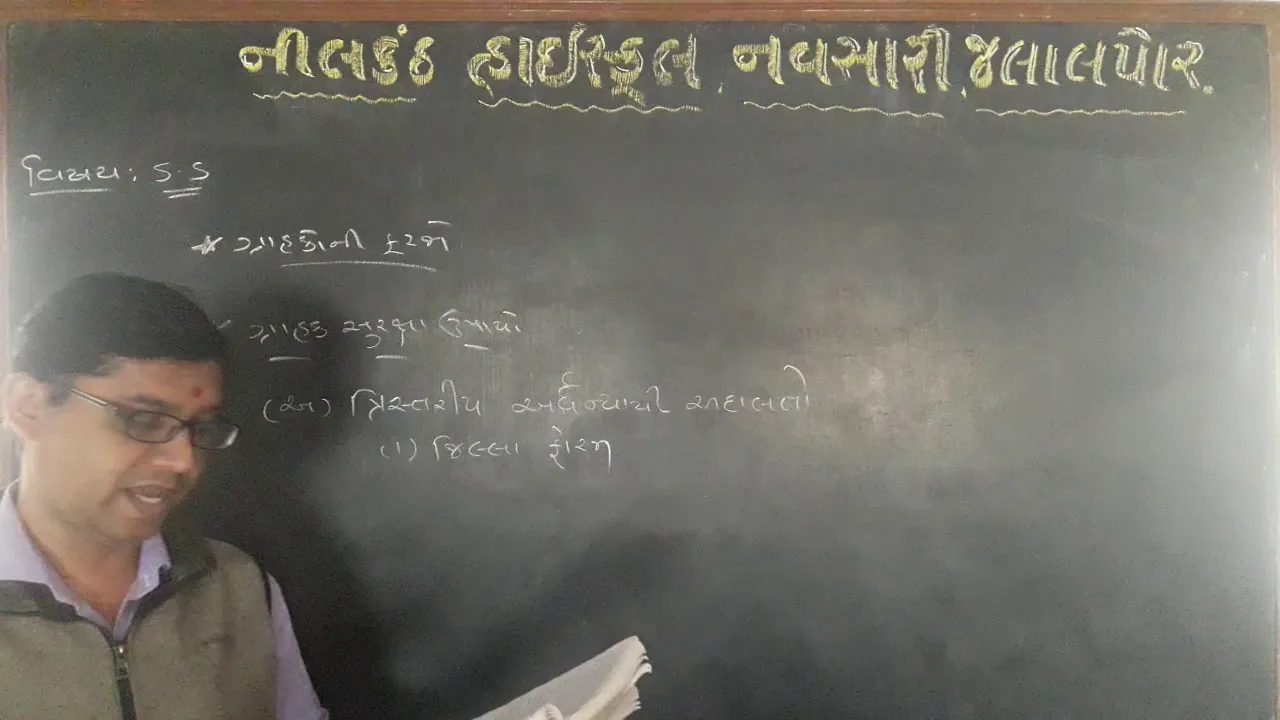 નીલકંઠ હાઈસ્કૂલ, નવસારી, જલાલપોર.
વિષય: S.S
* ગ્રાહકોની ફરજો
ગ્રાહક સુરક્ષા ઉપાયો
(અ) ત્રિસ્તરીય અર્ધન્યાયી અદાલતો
(1) જિલ્લા ફોરમ